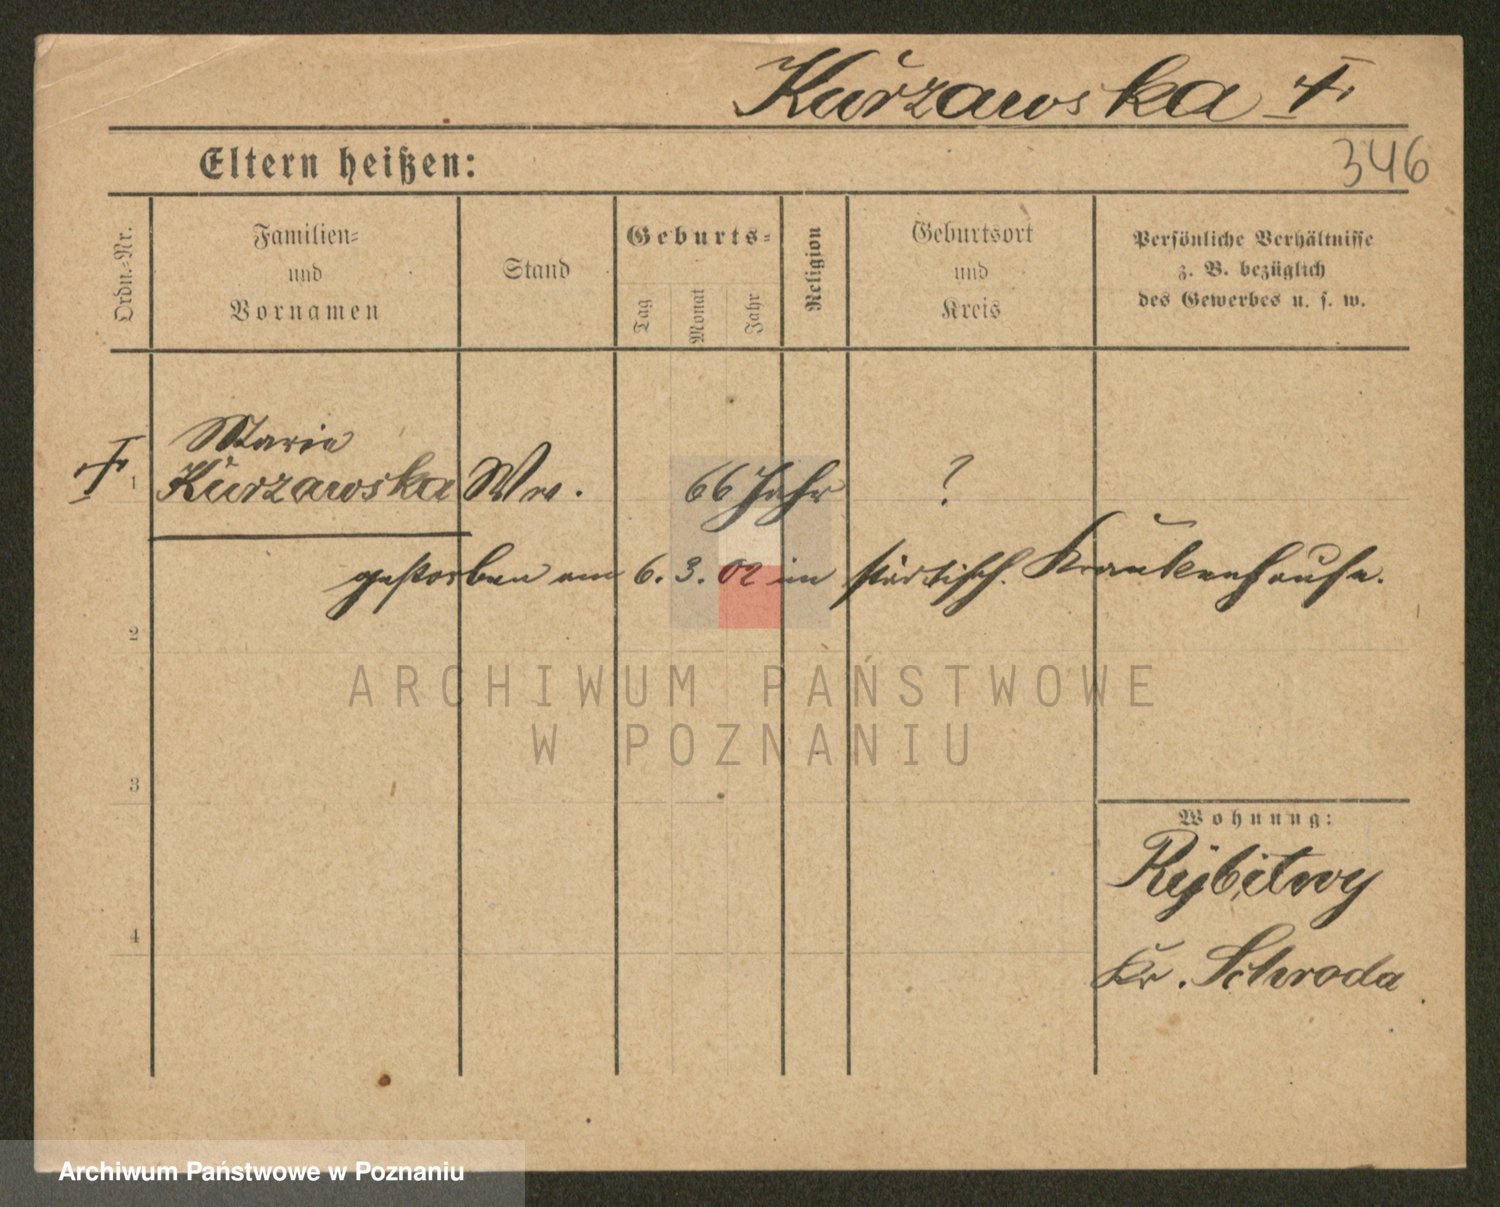 Kurzawska †
346
Eltern heißen:
Ordn.-Nr.
Familien-
und
Vornamen
Stand
Geburts-
Tag
Monat
Jahr
Religion
Geburtsort
und
Kreis
Persönliche Verhältnisse
z. B. bezüglich
des Gewerbes u. s. w.
† 1 Marie
Kurzawska Ww. 66 Jahr ?
gestorben am 6. 3. 02 im städtisch. Krankenhause.
2
ARCHIWUM PAŃSTWOWE
W POZNANIU
3
Wohnung:
Rybitwy
4
Kr. Schroda
Archiwum Państwowe w Poznaniu